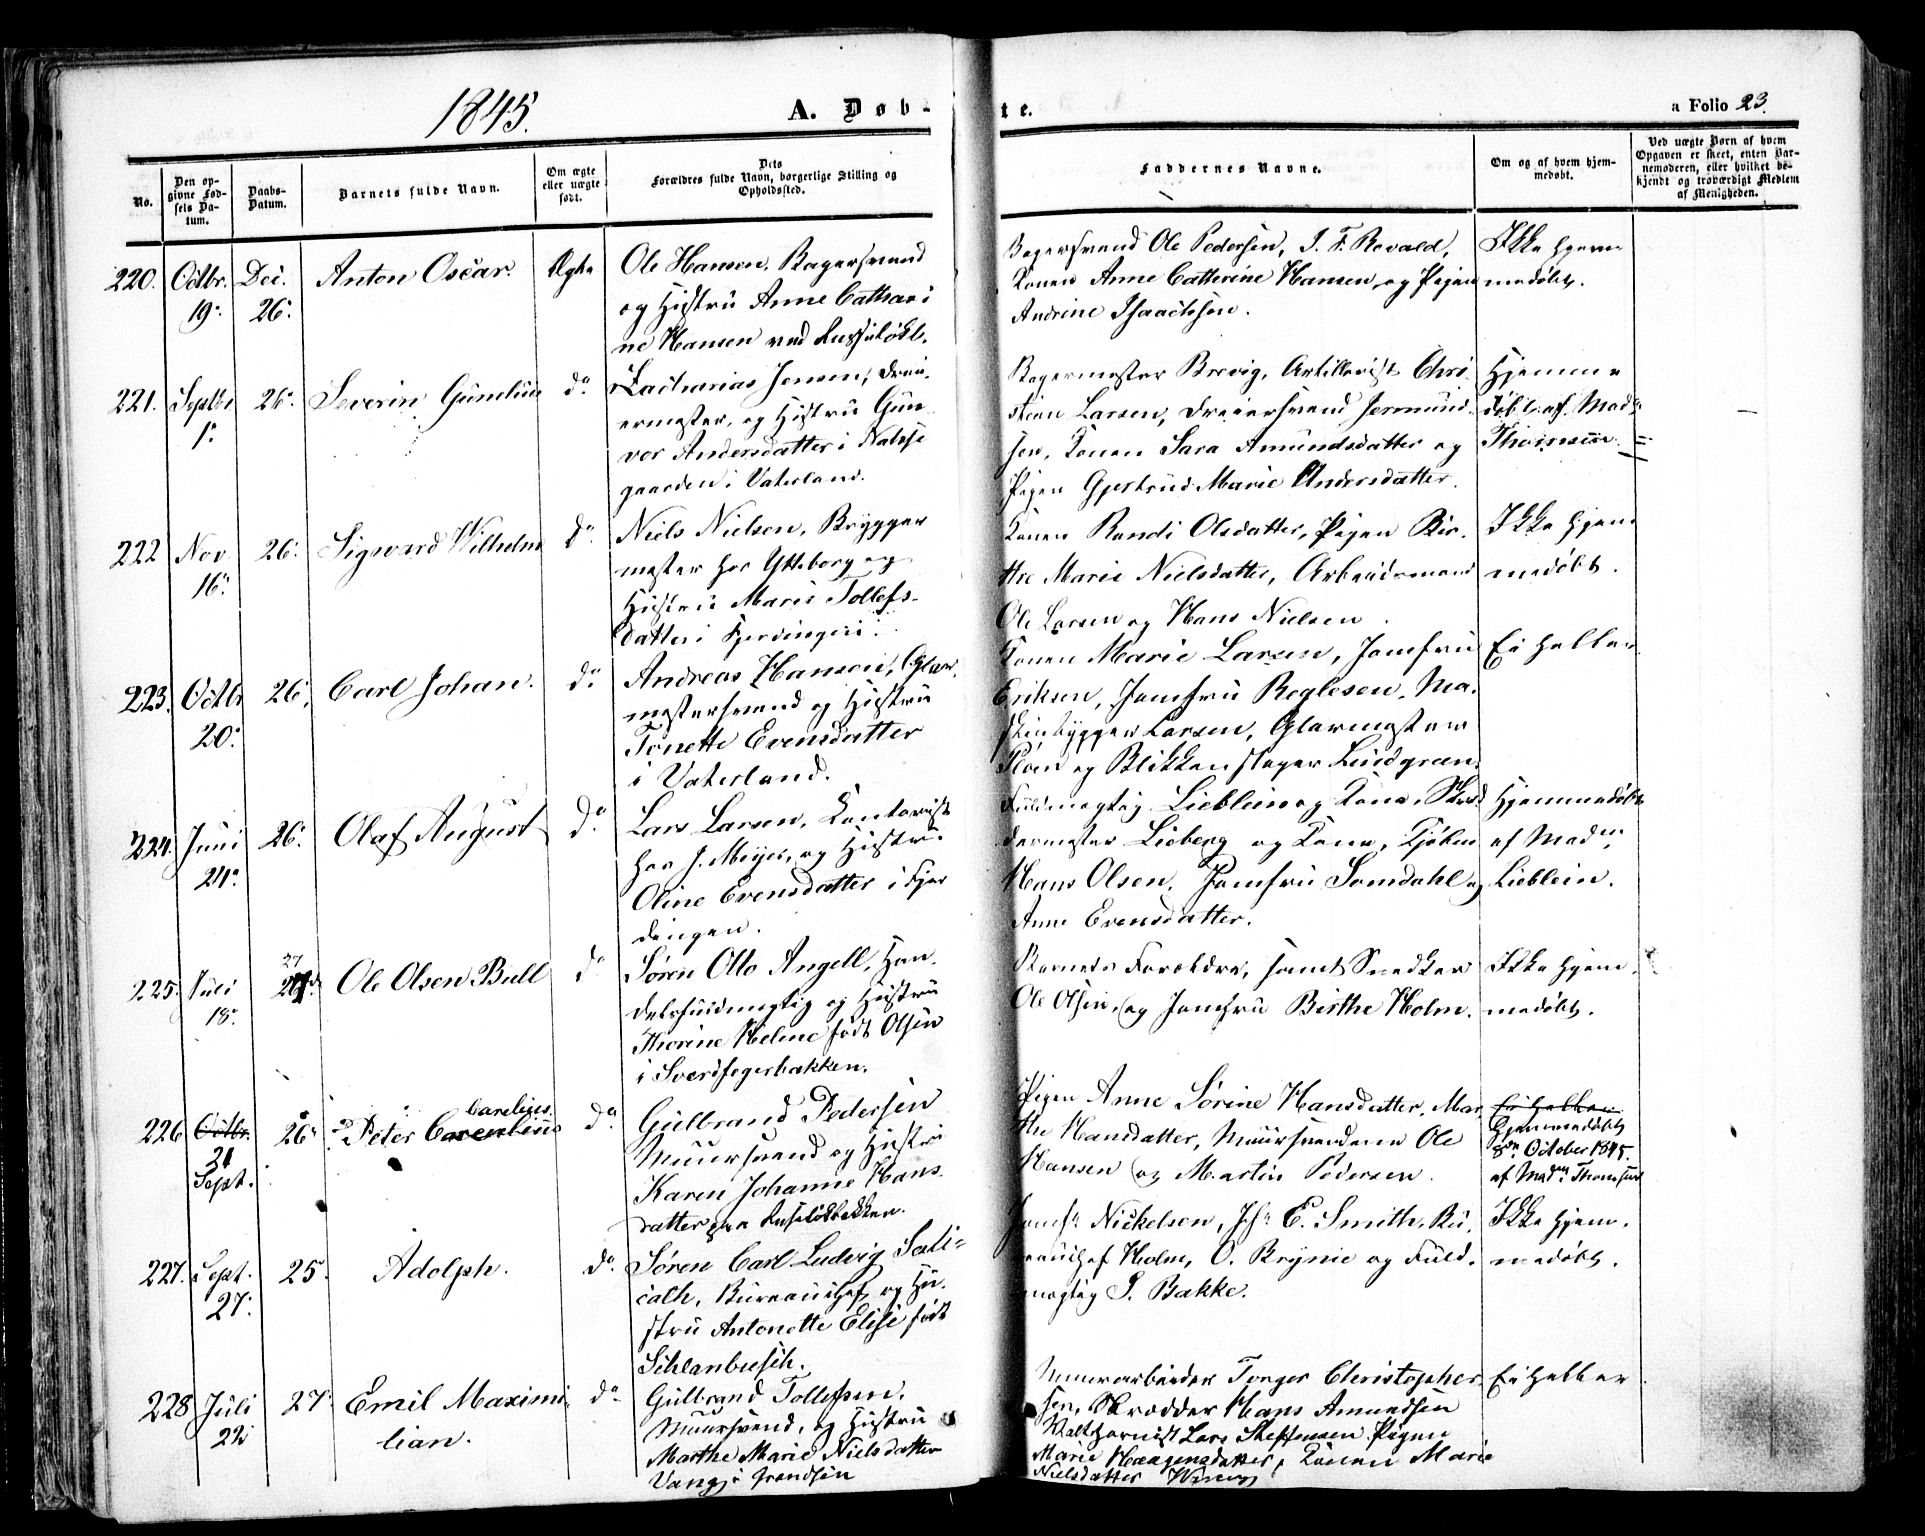 1845.
A. Døb-
te.
a Folio 23.
No.
Den op-
givne Fød-
sels Da-
tum.
Daabs-
Datum.
Barnets fulde Navn.
Om ægte
eller uægte
født.
Dets
Forældres fulde Navn, borgerlige Stilling og
Opholdssted.
Faddernes Navne.
Om og af hvem hjem-
medøbt.
Ved uægte Børn af hvem
Opgaven er skeet, enten Bar-
nemoderen, eller hvilket be-
kjendt og troværdigt Medlem
af Menigheden.
220. Octbr. 19. Dec. 26. Anton Oscar. Ægte
Ole Hansen, Bagersvend
og Hustru Anne Cathari
ne Hansen ved Russeløkb.
Bagersvend Ole Pedersen, J. F. Revald,
Konen Anne Catherine Hansen og Pigen
Andrine Isaachsen.
Ikke hjem
medøbt.
221. Septbr 1. 26. Severin Gunelius do
Zacharias Jensen, Drei-
ermester, og Hustru Gun
vor Andersdatter i
gaarden i Vaterland.
Bagermester Brevig, Artillerist Chri-
stian Larsen, Dreiersvend Jermund-
sen, Konen Sara Amundsdatter og
Pigen Gjertrud Marie Andersdatter.
Hjemme
døbt af Mad.
Thomsen
222 Nov 16. 26. Sigvard Wilhelm do
Niels Nielsen, Brygger
mester hos Ytteborg og
Hustru Marie Tollefs-
datter i Fjerdingen.
Konen Randi Olsdatter, Pigen Bir-
the Marie Nielsdatter, Arbeidsmand
Ole Larsen og Hans Nielsen.
Ikke hjem
medøbt.
223. Octbr 20. 26. Carl Johan. do
Andreas Hansen, Glar-
mestersvend og Hustru
Tonette Evensdatter
i Vaterland.
Konen Marie Larsen, Jomfru
Eriksen, Jomfru Reglesen, Ma-
skinbygger Larsen, Glarmester
Ploen og Blikkenslager Lindgren.
Ei heller
224. Juni 24. 26. Olaf August do
Lars Larsen, Kontorist
hos J. Meyer, og Hustru
Oline Evensdatter i Fjer
dingen.
Fuldmægtig Lieblein og Kone, Skræd
dermester Lieberg og Kone,
Hans Olsen, Jomfru Somdahl og
Anne Evensdatter.
Hjemmedøbt
af Madm.
Lieblein.
225. Juli 18. 27 Ole Olsen Bull do
Søren Otto Angell, Han-
delsfuldmægtig og Hustru
Thorine Heline født Olsen
i Sverdfegerbakken.
Barnets Forældre, samt Snedker
Ole Olsen, og Jomfru Birthe Holm.
Ikke hjem
medøbt.
226 Octbr. 21 Sept. 26. Peter Carenlius Carelius. do
Gulbrand Pedersen
Muursvend og Hustru
Karen Johanne Hans-
datter paa Ruseløkbakken.
Pigen Anne Sørine Hansdatter, Mar
the Hansdatter, Muursvendene Ole
Hansen og Martin Pedersen.
Ei heller
Hjemmedøbt
8de October 1845.
af Madm. Thomsen
227. Sept. 27. 25. Adolph. do
Søren Carl Ludvig Sali-
cath, Bureauchef, og Hu-
stru Antonette Elise født
Schlanbusch.
Jomfr Nickelsen, Jfr E. Smith, Bu-
reauchef Holm, O. Brynie og Fuld-
mægtig P. Bakke.
Ikke hjem-
medøbt.
228 Juli 22 27. Emil Maximi-
lian. do
Gulbrand Tollefsen,
Muursvend, og Hustru
Marthe Marie Nielsdatter
Vang
Muurarbeider Torger Christopher-
sen, Skrædder Hans Amundsen
Valthornist Lars Steffensen, Pigen
Marie Haagensdatter, Konen Marie
Nielsdatter
Ei heller